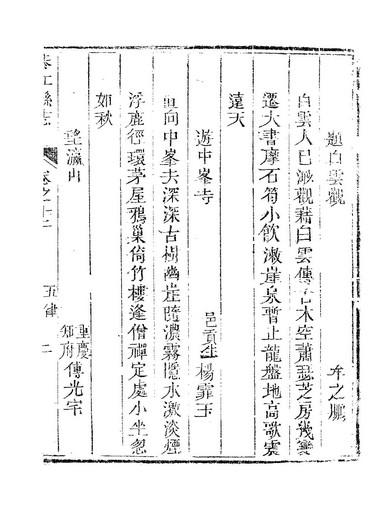 題白雲觀 牟之鵬
白雲人已渺觀藉白雲傳古木空蕭瑟芝房幾變
遷大書摩石筍小飲漱崖泉暫止龍盤地高歌震
遠天
遊中峯寺 邑貢生楊霏玉
直向中峯去深深古樹幽崖隨濃霧隱水激淡煙
浮鹿徑環茅屋鴉巢倚竹樓逢僧禪定處小坐忽
如秋
望瀛山 重慶知府傅光宇
綦江縣志 卷之十二 五律 二